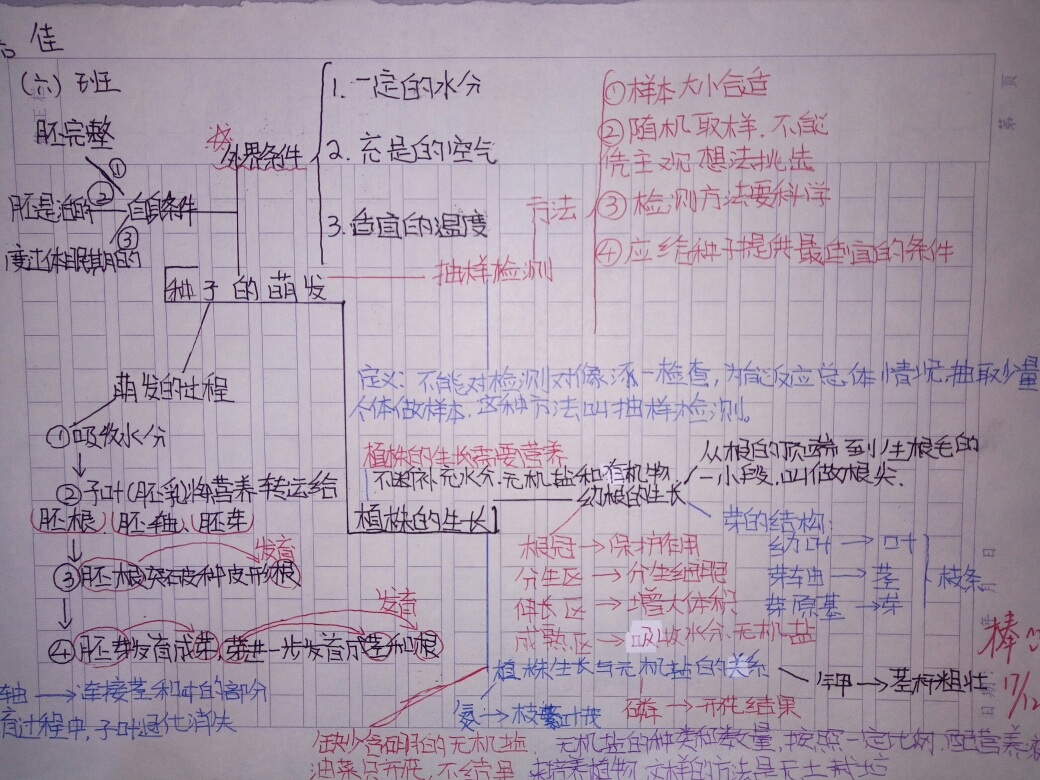 佳
(六)班
胚完整
①
②
胚是活的
自身条件
③
度过休眠期的
外界条件
1.一定的水分
2.充足的空气
3.适宜的温度
种子的萌发
抽样检测
方法
①样本大小合适
②随机取样.不能
凭主观想法挑选
③检测方法要科学
④应给种子提供最适宜的条件
定义:不能对检测对像逐一检查,为能反应总体情况,抽取少量
个体做样本,这种方法叫抽样检测。
萌发的过程
①吸收水分
②子叶(胚乳)将营养转运给
胚根、胚轴、胚芽
发育
③胚根突破种皮形成根
发育
④胚芽发育成芽,芽进一步发育成茎和根
轴→连接茎和叶的部分
育过程中,子叶退化消失
植株的生长需要营养
不断补充水分.无机盐和有机物
植株的生长
幼根的生长
从根的顶端到生根毛的
一小段,叫做根尖.
根冠→保护作用
分生区→分生细胞
伸长区→增大体积
成熟区→吸收水分、无机盐
芽的结构:
幼叶→叶
芽轴→茎
芽原基→芽
枝条
植株生长与无机盐的关系
氮→枝繁叶茂
磷→开花结果
钾→茎秆粗壮
棒
17/12
缺少含硼的无机盐
油菜只开花,不结果
无机盐的种类和数量,按照一定比例,配营养液
来培养植物,这样的方法是无土栽培